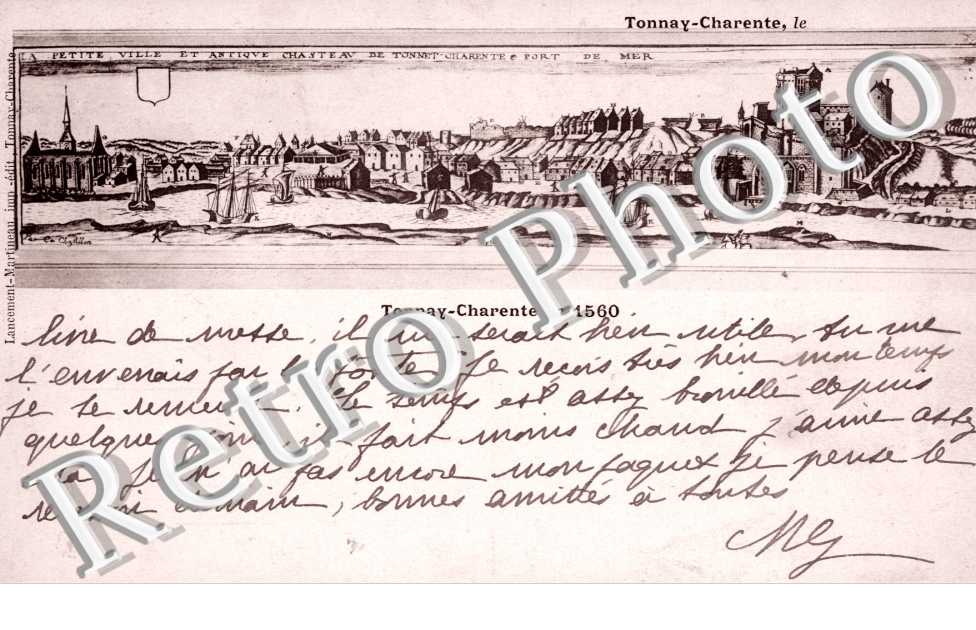 Tonnay-Charente, le
LA PETITE VILLE ET ANTIQVE CHASTEAV DE TONNET CHARENTE PORT DE MER
Lancement-Martineau imp.-édit Tonnay-Charente
Tonnay-Charente 1560
livre de messe, il me serait bien utile, tu me
l'enverrais par la poste. Je reçois très bien mon temps
je te remercie. Le temps est assez brouillé depuis
quelque il fait moins chaud j'aime assez
ça je n'ai pas encore mon paquet je pense le
demain, bonnes amitiés à toutes
MG
Retro Photo